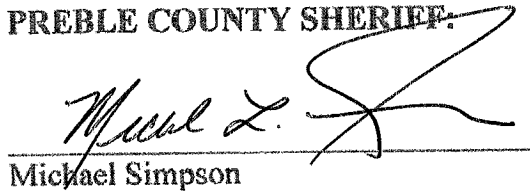 PREBLE COUNTY SHERIFF:
Michael L.
Michael Simpson